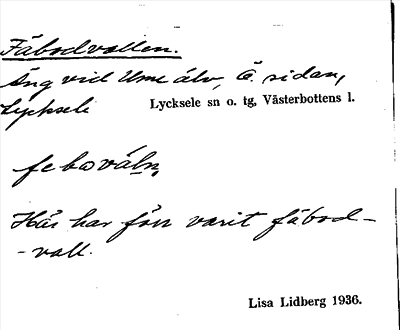 Fäbodvallen.
Äng vid Ume älv, Ö. sidan,
Lycksele
Lycksele sn o. tg, Västerbottens l.
febováln,
Här har förr varit fäbod-
-vall.
Lisa Lidberg 1936.